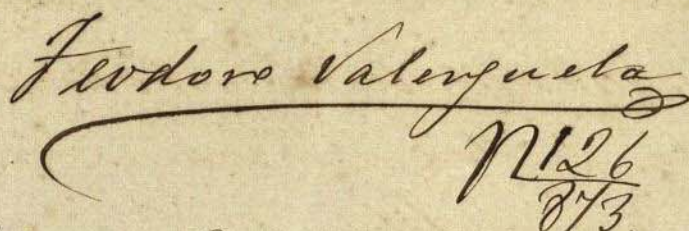 Teodoro Valenzuela
N 126
373